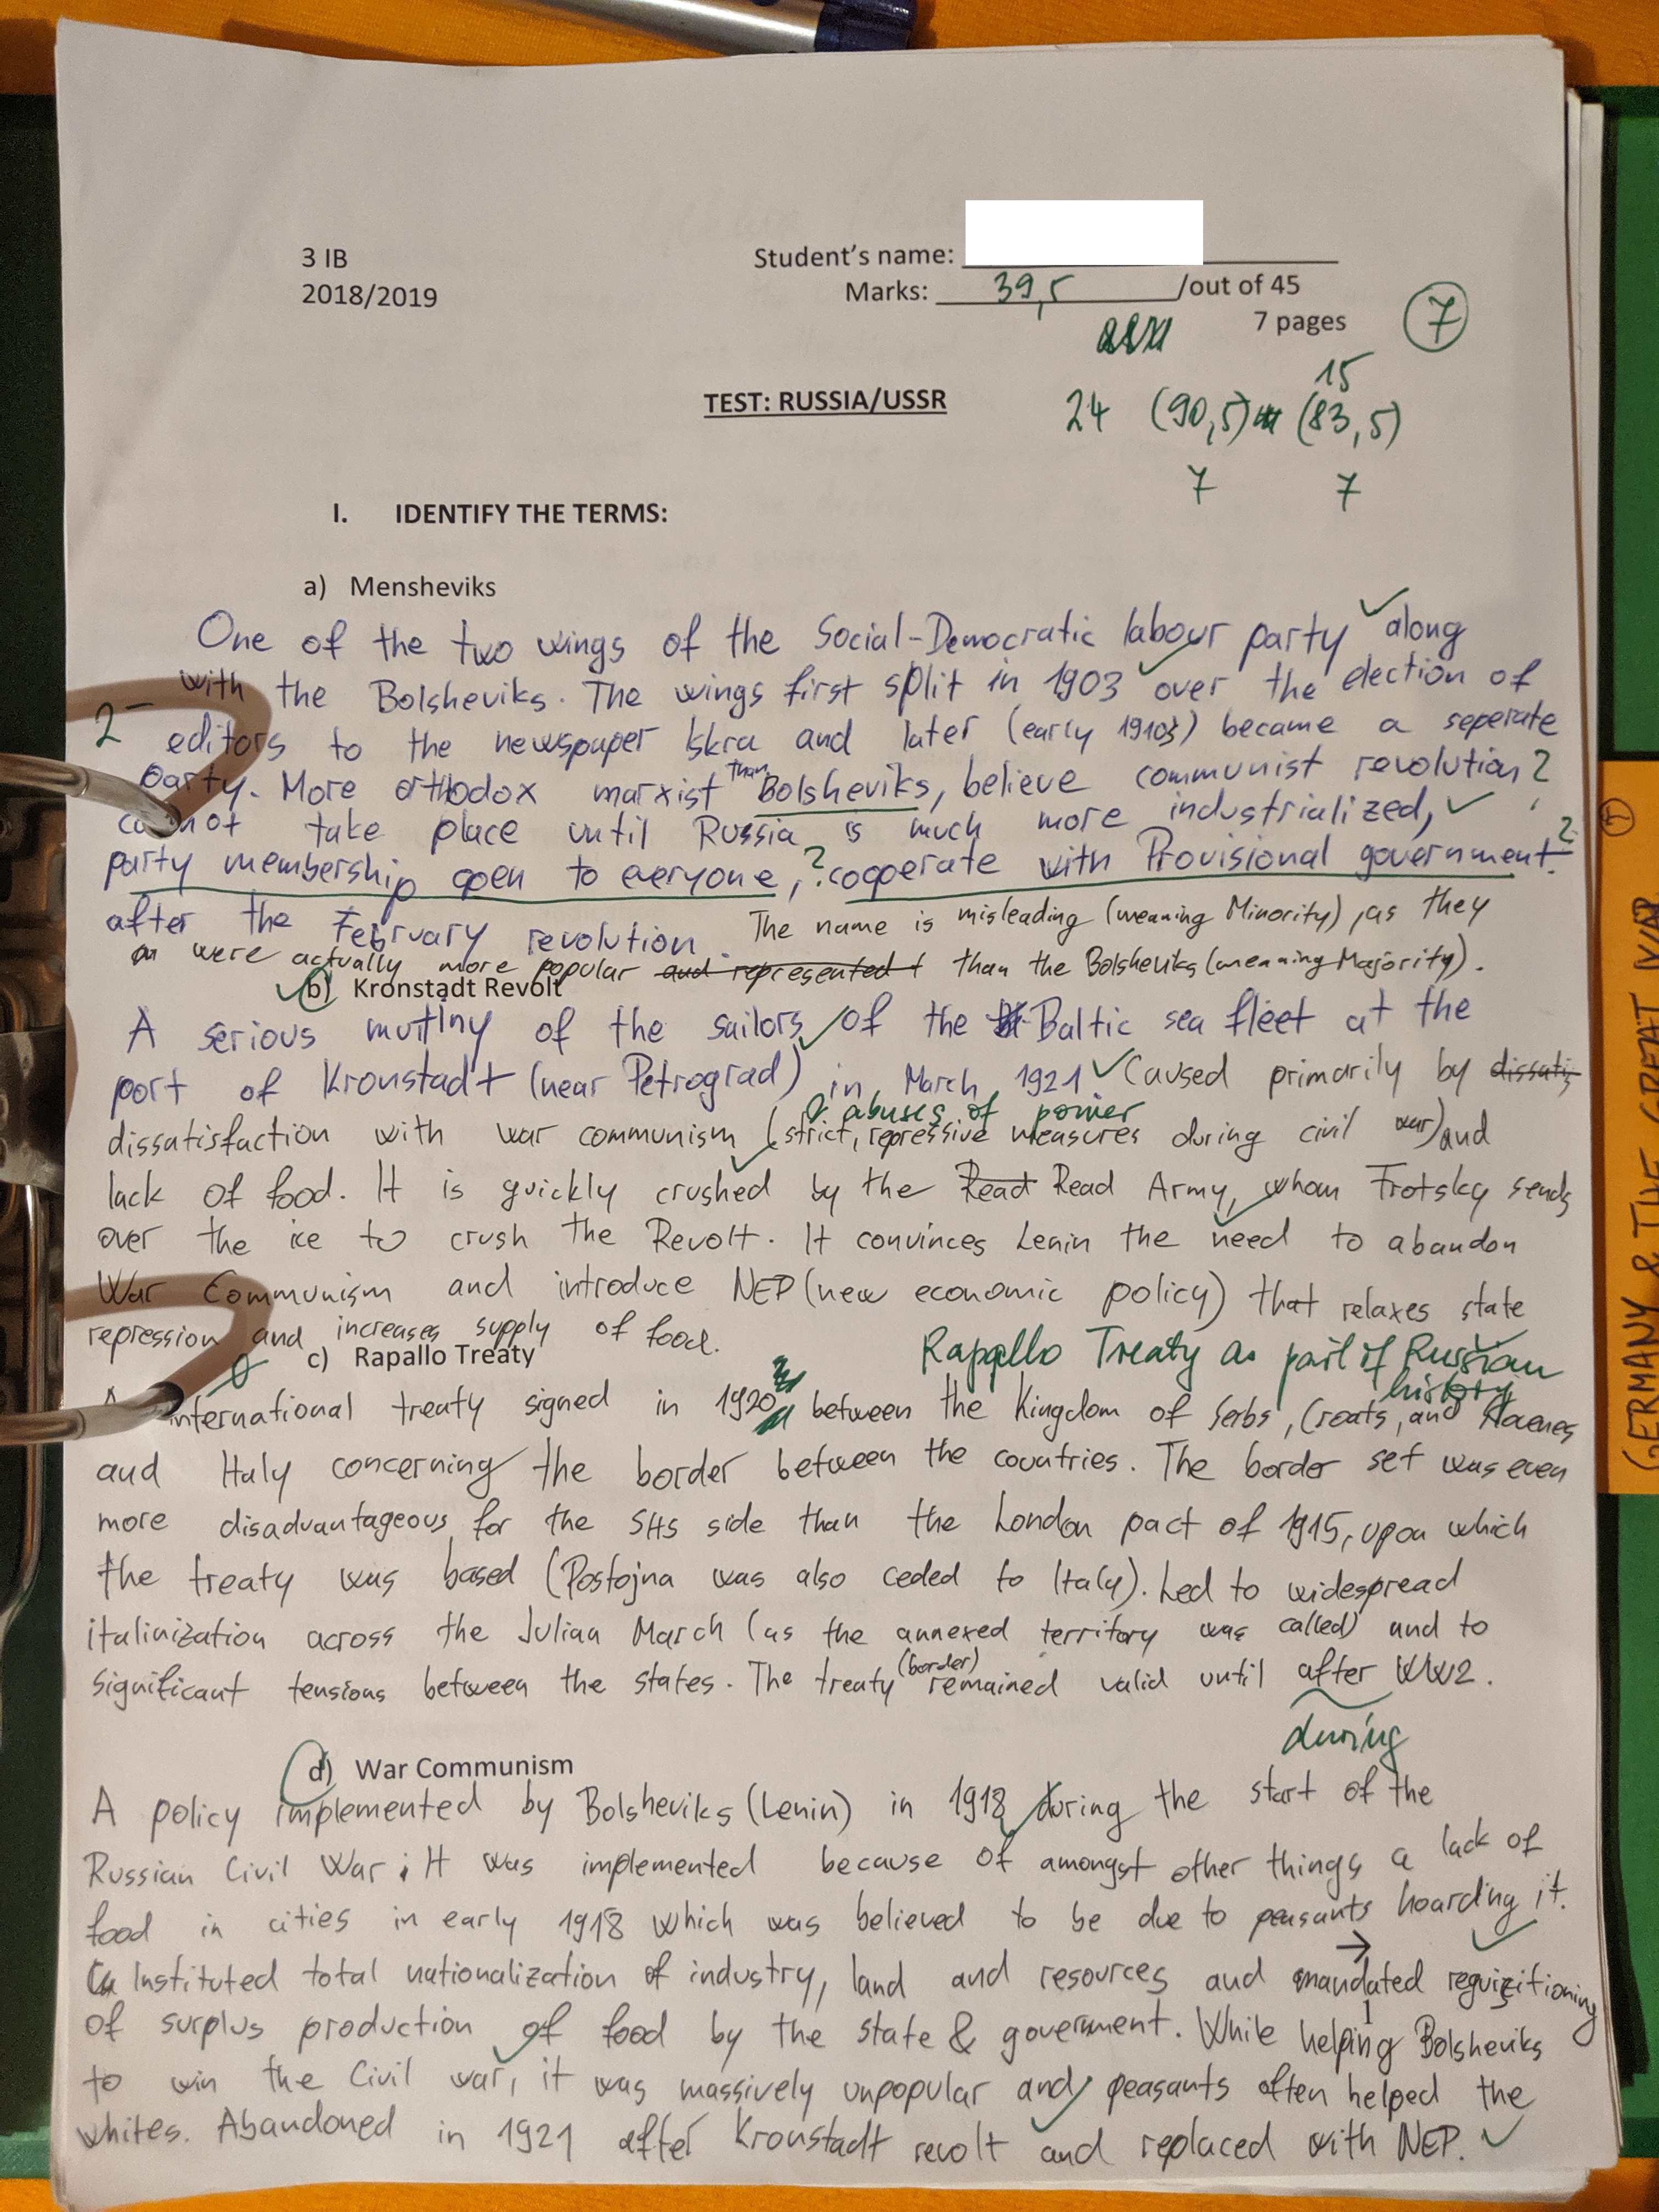 3 IB
Student's name:
2018/2019
Marks: 39,5 /out of 45
7 pages
7
15
TEST: RUSSIA/USSR
24 (90,5) (83,5)
7 7
I. IDENTIFY THE TERMS:
a) Mensheviks
One of the two wings of the Social-Democratic labour party along
with the Bolsheviks. The wings first split in 1903 over the election of
2-
editors to the newspaper Iskra and later (early 1910s) became a seperate
party. More orthodox marxist than Bolsheviks, believe communist revolution ?
cannot take place until Russia is much more industrialized,
party membership open to everyone, ? cooperate with Provisional government ?
after the February revolution. The name is misleading (meaning Minority), as they
were actually more popular and represented than the Bolsheviks (meaning Majority).
b) Kronstadt Revolt
A serious mutiny of the sailors of the Baltic sea fleet at the
port of Kronstadt (near Petrograd) in March 1921 Caused primarily by dissatis
& abuses of power
dissatisfaction with war communism (strict, repressive measures during civil war) and
lack of food. It is quickly crushed by the Read Read Army, whom Trotsky sends
over the ice to crush the Revolt. It convinces Lenin the need to abandon
War Communism and introduce NEP (new economic policy) that relaxes state
repression and increases supply of food.
c) Rapallo Treaty
Rapallo Treaty as part of Russian
history
international treaty signed in 1920 between the Kingdom of Serbs, Croats, and Slovenes
and Italy concerning the border between the countries. The border set was even
more disadvantageous for the SHS side than the London pact of 1915, upon which
the treaty was based (Postojna was also ceded to Italy). Led to widespread
italinization across the Julian March (as the annexed territory was called) and to
significant tensions between the states. The treaty (border) remained valid until after WW2.
during
d) War Communism
A policy implemented by Bolsheviks (Lenin) in 1918 during the start of the
Russian Civil War. It was implemented because of amongst other things a lack of
food in cities in early 1918 which was believed to be due to peasants hoarding it.
Instituted total nationalization of industry, land and resources and mandated requisitioning
of surplus production of food by the state & government. While helping Bolsheviks
to win the Civil war, it was massively unpopular and peasants often helped the
whites. Abandoned in 1921 after Kronstadt revolt and replaced with NEP.
GERMANY & THE GREAT WAR